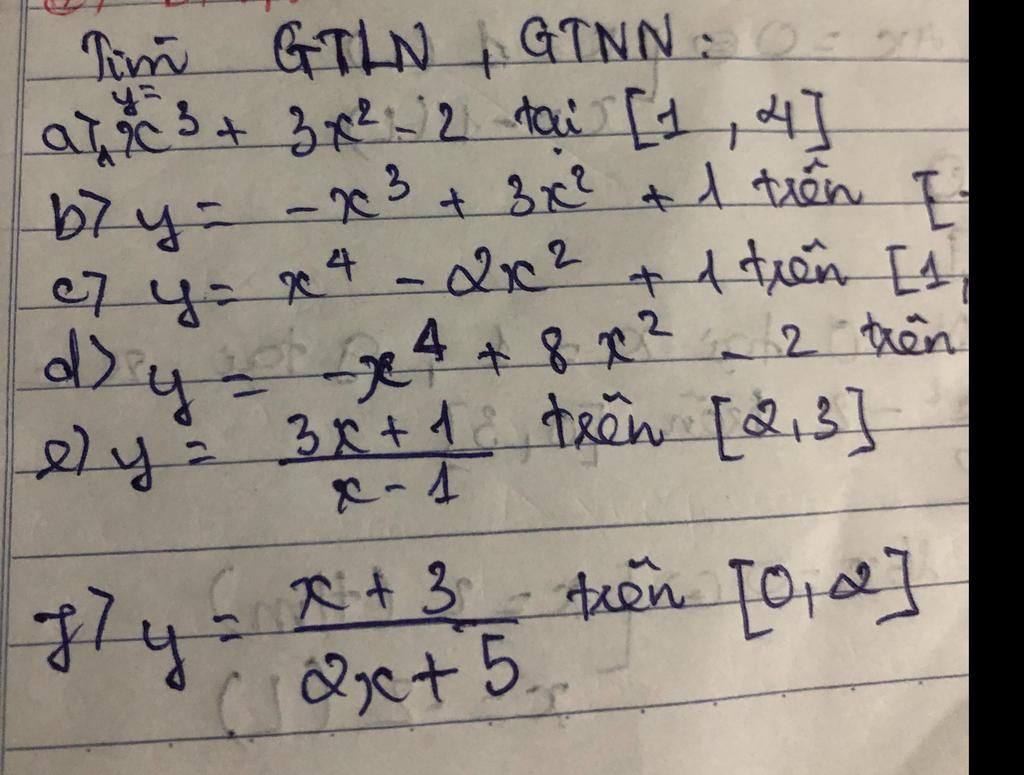 Tìm GTLN, GTNN:
a) y = x³ + 3x² - 2 tại [1, 4]
b) y = -x³ + 3x² + 1 trên [-
c) y = x⁴ - 2x² + 1 trên [1,
d) y = -x⁴ + 8x² - 2 trên
e) y = (3x + 1)/(x - 1) trên [2, 3]
f) y = (x + 3)/(2x + 5) trên [0, 2]